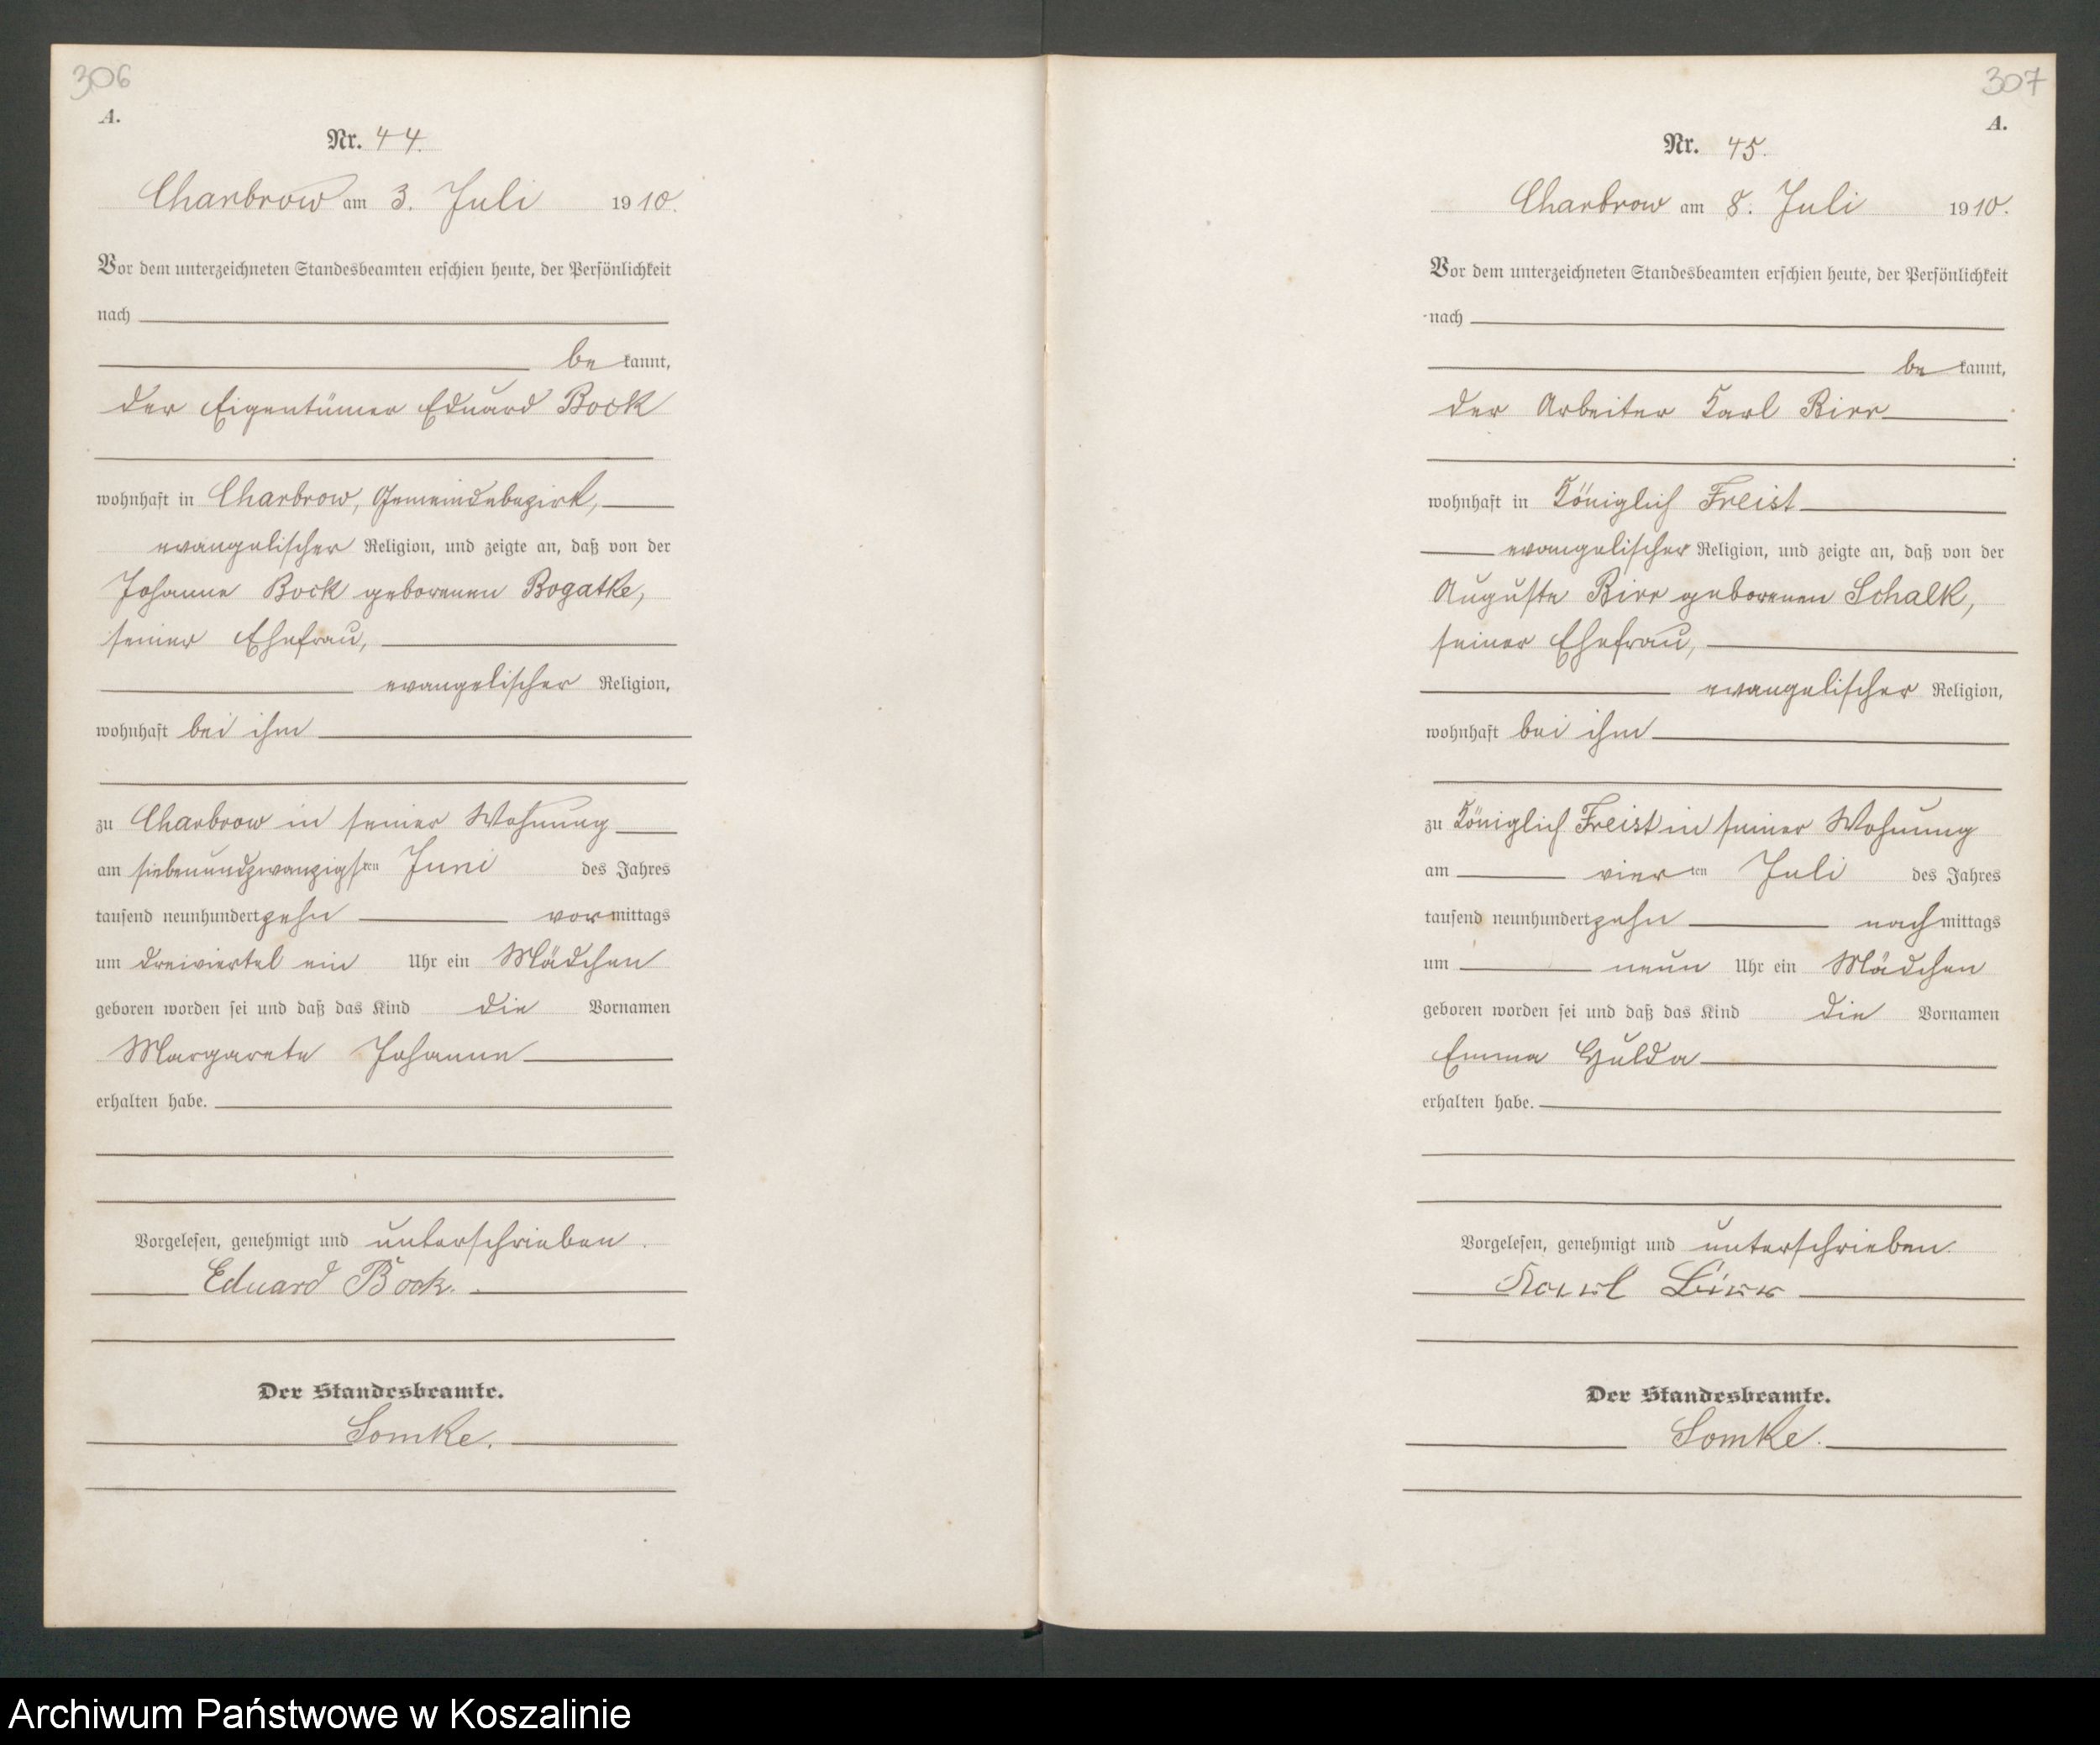 306
A.
Nr. 44.
Charbrow am 3. Juli 1910.
Vor dem unterzeichneten Standesbeamten erschien heute, der Persönlichkeit
nach
be kannt,
der Eigentümer Eduard Bock
wohnhaft in Charbrow, Gemeindebezirk,
evangelischer Religion, und zeigte an, daß von der
Johanne Bock geborenen Bogatke,
seiner Ehefrau,
evangelischer Religion,
wohnhaft bei ihm
zu Charbrow in seiner Wohnung
am siebenundzwanzigsten Juni des Jahres
tausend neunhundertzehn vormittags
um dreiviertel ein Uhr ein Mädchen
geboren worden sei und daß das Kind die Vornamen
Margarete Johanne
erhalten habe.
Vorgelesen, genehmigt und unterschrieben.
Eduard Bock.
Der Standesbeamte.
Somke.
307
A.
Nr. 45.
Charbrow am 8. Juli 1910.
Vor dem unterzeichneten Standesbeamten erschien heute, der Persönlichkeit
nach
be kannt,
der Arbeiter Karl Birr
wohnhaft in Königlich Freist
evangelischer Religion, und zeigte an, daß von der
Auguste Birr geborenen Schalk,
seiner Ehefrau,
evangelischer Religion,
wohnhaft bei ihm
zu Königlich Freist in seiner Wohnung
am vierten Juli des Jahres
tausend neunhundertzehn nachmittags
um neun Uhr ein Mädchen
geboren worden sei und daß das Kind die Vornamen
Emma Hulda
erhalten habe.
Vorgelesen, genehmigt und unterschrieben.
Karl Birr
Der Standesbeamte.
Somke.
Archiwum Państwowe w Koszalinie